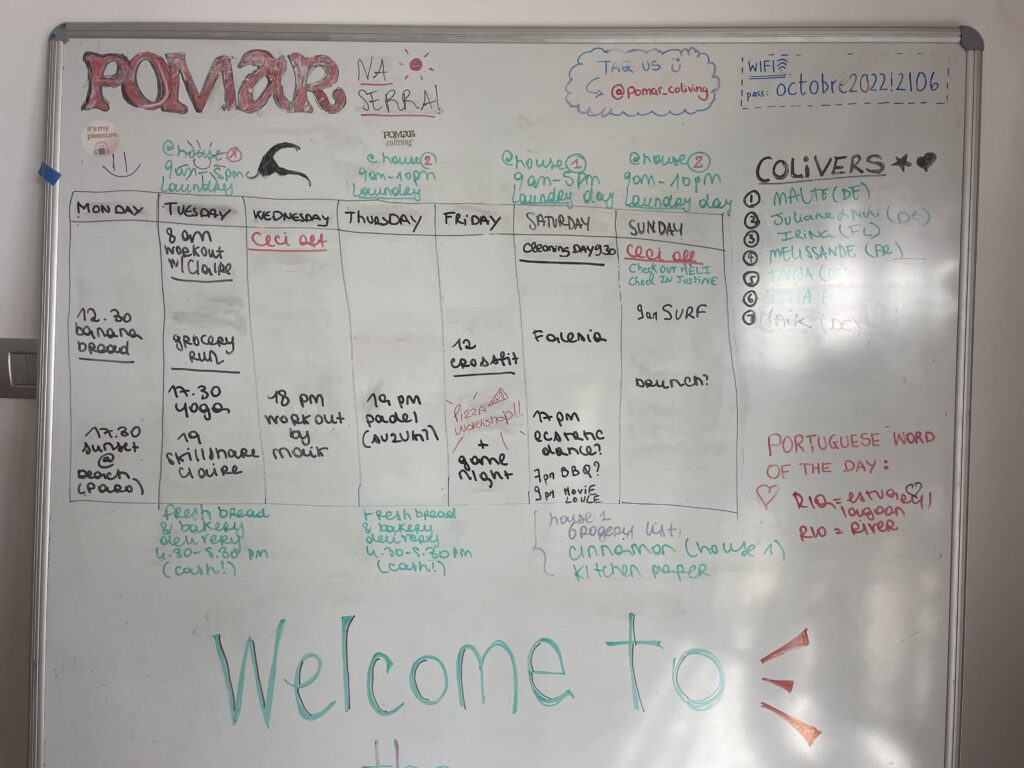 POMAR
NA
SERRA!
TAG US
@pomar_coliving
WIFI
pass: octobre2022!2106
It's my
pleasure.
POMAR
coliving
@house 1
9am-5pm
Laundry
@house 2
9am-10pm
Laundry
@house 1
9am-5pm
Laundry day
@house 2
9am-10pm
Laundry day
COLIVERS
1 MALTE (DE)
2 Juliane & Nini (DE)
3 IRINA (FL)
4 MELISSANDE (FR)
5 (DE)
6
7 MAIK (DE)
MONDAY
TUESDAY
WEDNESDAY
THURSDAY
FRIDAY
SATURDAY
SUNDAY
12.30
banana
bread
17.30
sunset
@
beach
(PARO)
8 am
workout
w/ Claire
grocery
run
17.30
yoga
19
skillshare
claire
Ceci off
18 pm
workout
by
maik
19 pm
padel
(SUZUKI?)
12
crossfit
PIZZA
WORKSHOP!!
+
game
night
Cleaning DAY 9.30
Falesia
17 pm
ecstatic
dance?
7pm BBQ?
9pm MOVIE
Ceci off
Check OUT MELI
Check IN Justine
9am SURF
brunch?
fresh bread
& bakery
delivery
4.30-5.30 pm
(cash!)
fresh bread
& bakery
delivery
4.30-5.30 pm
(cash!)
house 1
grocery list:
cinnamon (house 1)
kitchen paper
PORTUGUESE WORD
OF THE DAY:
RIA = estuary/
lagoon
RIO = RIVER
Welcome to
the